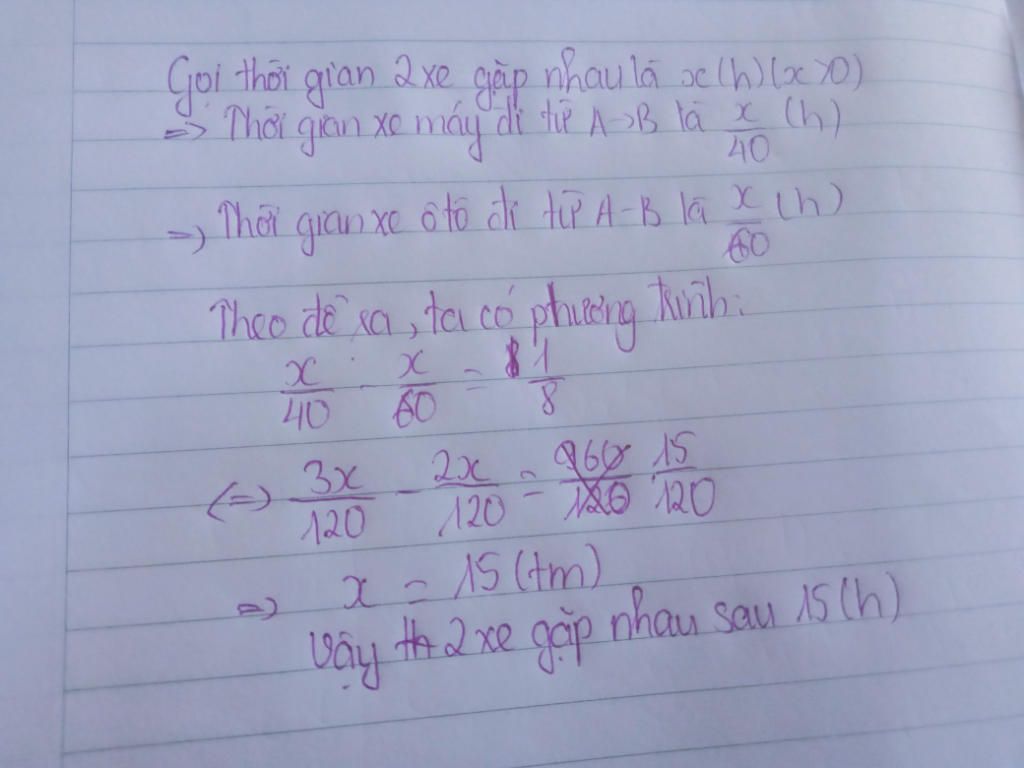 Gọi thời gian 2 xe gặp nhau là x(h)(x>0)
=> Thời gian xe máy đi từ A->B là x/40 (h)
=> Thời gian xe ô tô đi từ A-B là x/60 (h)
Theo đề ra, ta có phương trình:
x/40 - x/60 = 1/8
<=> 3x/120 - 2x/120 = 15/120
=> x = 15 (tm)
Vậy 2 xe gặp nhau sau 15(h)